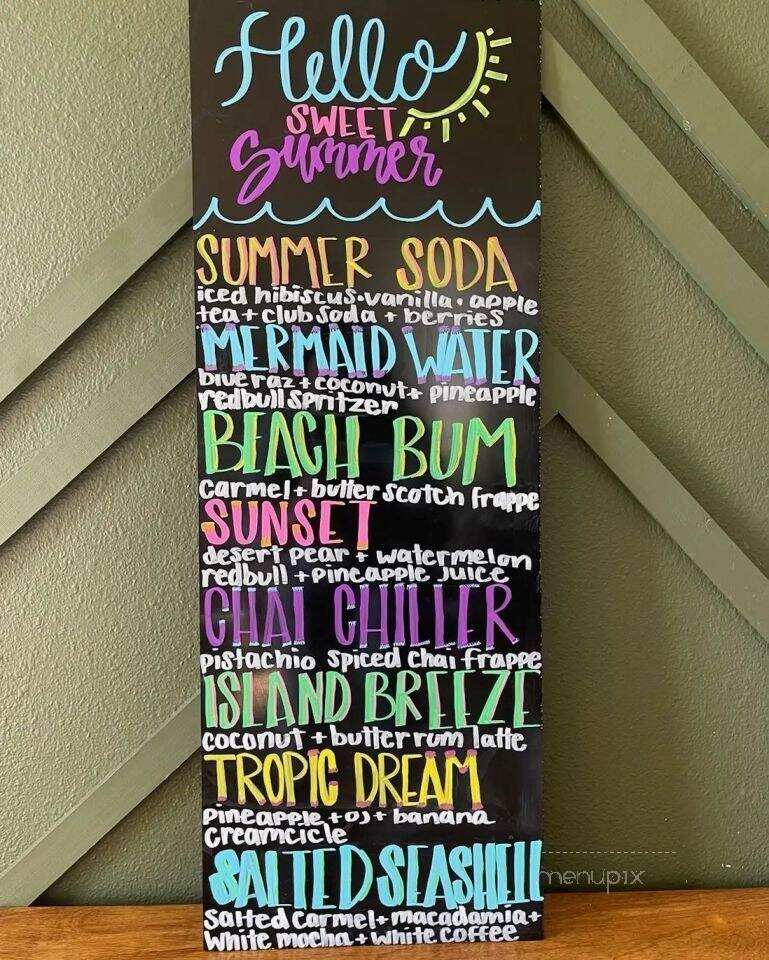 Hello
SWEET
Summer
SUMMER SODA
iced hibiscus·vanilla·apple
tea + club soda + berries
MERMAID WATER
blue raz + coconut + pineapple
redbull spritzer
BEACH BUM
carmel + butter scotch frappe
SUNSET
desert pear + watermelon
redbull + pineapple juice
CHAI CHILLER
pistachio spiced chai frappe
ISLAND BREEZE
coconut + butter rum latte
TROPIC DREAM
pineapple + oj + banana
creamcicle
SALTED SEASHELL
menupix
salted carmel + macadamia +
white mocha + white coffee